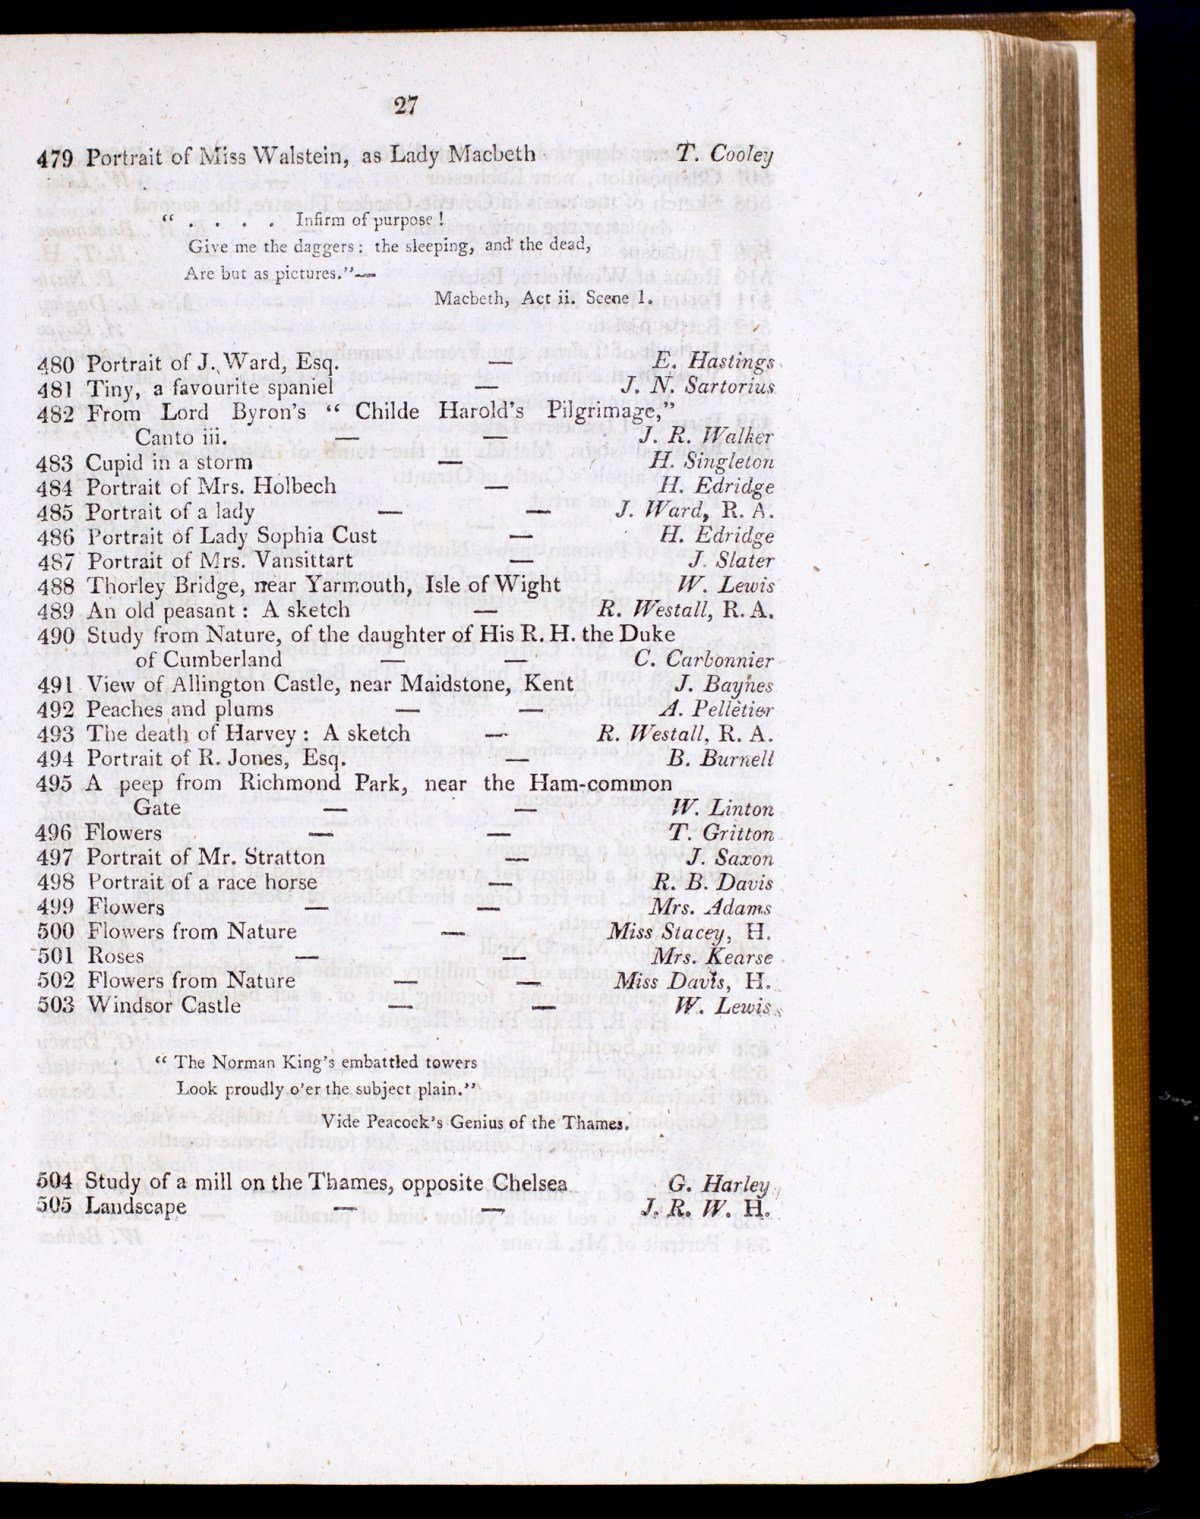 27
479 Portrait of Miss Walstein, as Lady Macbeth T. Cooley
" . . . . Infirm of purpose !
Give me the daggers : the sleeping, and the dead,
Are but as pictures."—
Macbeth, Act ii. Scene 1.
480 Portrait of J. Ward, Esq. — E. Hastings
481 Tiny, a favourite spaniel — J. N. Sartorius
482 From Lord Byron's " Childe Harold's Pilgrimage,"
Canto iii. — — J. R. Walker
483 Cupid in a storm — H. Singleton
484 Portrait of Mrs. Holbech — H. Edridge
485 Portrait of a lady — — J. Ward, R. A.
486 Portrait of Lady Sophia Cust — H. Edridge
487 Portrait of Mrs. Vansittart — J. Slater
488 Thorley Bridge, near Yarmouth, Isle of Wight W. Lewis
489 An old peasant : A sketch — R. Westall, R. A.
490 Study from Nature, of the daughter of His R. H. the Duke
of Cumberland — — C. Carbonnier
491 View of Allington Castle, near Maidstone, Kent J. Baynes
492 Peaches and plums — — A. Pelletier
493 The death of Harvey : A sketch — R. Westall, R. A.
494 Portrait of R. Jones, Esq. — B. Burnell
495 A peep from Richmond Park, near the Ham-common
Gate — — W. Linton
496 Flowers — — T. Gritton
497 Portrait of Mr. Stratton — J. Saxon
498 Portrait of a race horse — R. B. Davis
499 Flowers — — Mrs. Adams
500 Flowers from Nature — Miss Stacey, H.
501 Roses — — Mrs. Kearse
502 Flowers from Nature — — Miss Davis, H.
503 Windsor Castle — — W. Lewis
" The Norman King's embattled towers
Look proudly o'er the subject plain."
Vide Peacock's Genius of the Thames.
504 Study of a mill on the Thames, opposite Chelsea G. Harley
505 Landscape — — J. R. W. H.